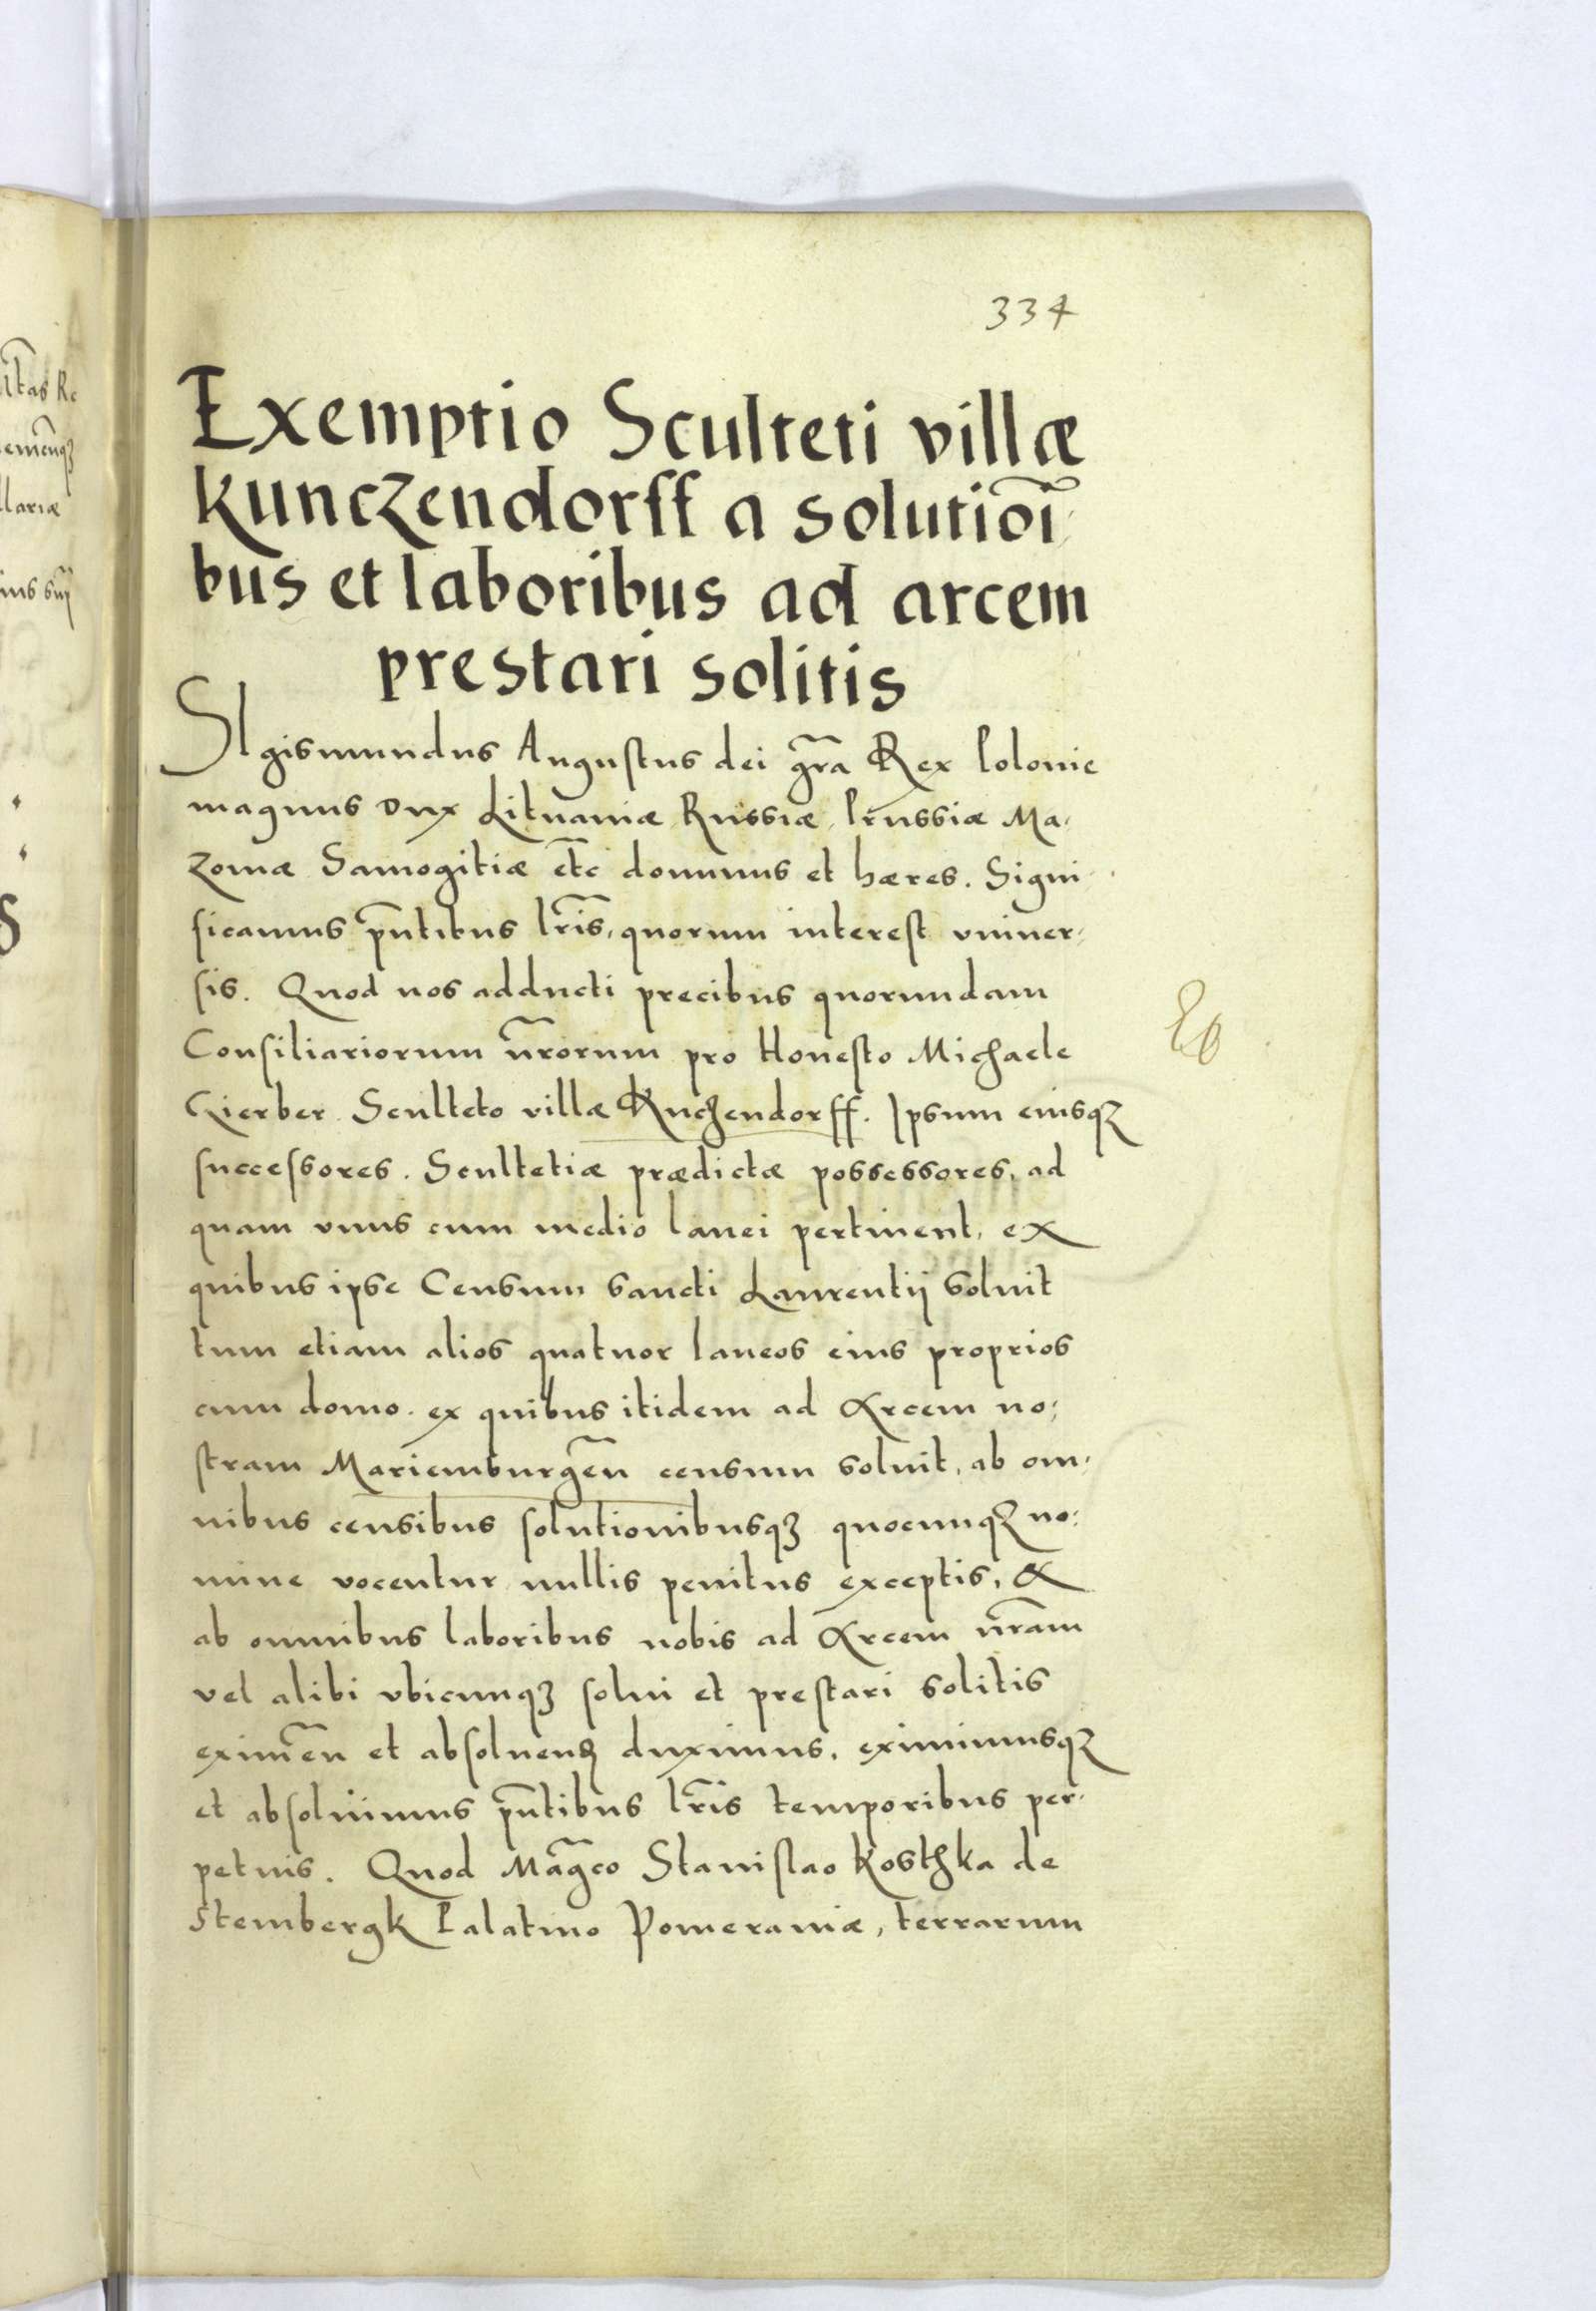 334
Exemptio Sculteti villæ
kunczendorff a solutioĩ-
bus et laboribus ad arcem
prestari solitis
SIgismundus Augustus dei gr̃a Rex Polonie
magnus Dux Lituaniæ Russiæ, Prussiæ Ma-
zouiæ Samogitiæ et̃c dominus et hæres. Signi-
ficamus pñtibus lr̃is, quorum interest vniuer-
sis. Quod nos adducti precibus quorundam
Consiliariorum nr̃orum pro Honesto Michaele
Gierber Sculteto villæ Kuczendorff. Ipsum eiusqꝫ
successores. Scultetiæ prædictæ possessores, ad
quam vnus cum medio lanei pertinent, ex
quibus ipse Censum sancti Laurentij soluit
tum etiam alios quatuor laneos eius proprios
cum domo. ex quibus itidem ad Arcem no-
stram Mariemburgeñ censum soluit, ab om-
nibus censibus solutionibusqꝫ quocunqꝫ no-
mine vocentur nullis penitus exceptis, &
ab omnibus laboribus nobis ad Arcem nr̃am
vel alibi vbicunqꝫ solui et prestari solitis
eximeñ et absoluenđ duximus, eximimusqꝫ
et absoluimus pñtibus lr̃is temporibus per-
petuis. Quod Mag̃co Stanislao Kosthka de
Stembergk Palatino Pomeraniæ, terrarum